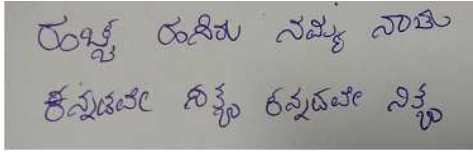 ಹಸಿರು ನಮ್ಮ ನಾಡು
ಕನ್ನಡವೇ ಸತ್ಯ ಕನ್ನಡವೇ ನಿತ್ಯ